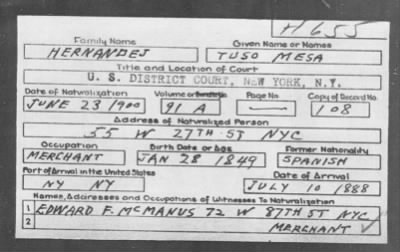 H 655
Family Name Given Name or Names
HERNANDEJ TUSO MESA
Title and Location of Court
U. S. DISTRICT COURT, NEW YORK, N.Y.
Date of Naturalization Volume or Page No. Copy of Record No.
JUNE 23 1900 91 A — 108
Address of Naturalized Person
55 W 27TH ST NYC
Occupation Birth Date or Age Former Nationality
MERCHANT JAN 28 1849 SPANISH
Port of Arrival in the United States Date of Arrival
NY NY JULY 10 1888
Names, Addresses and Occupations of Witnesses To Naturalization
1 EDWARD F. MCMANUS 72 W 87TH ST NYC
2 MERCHANT